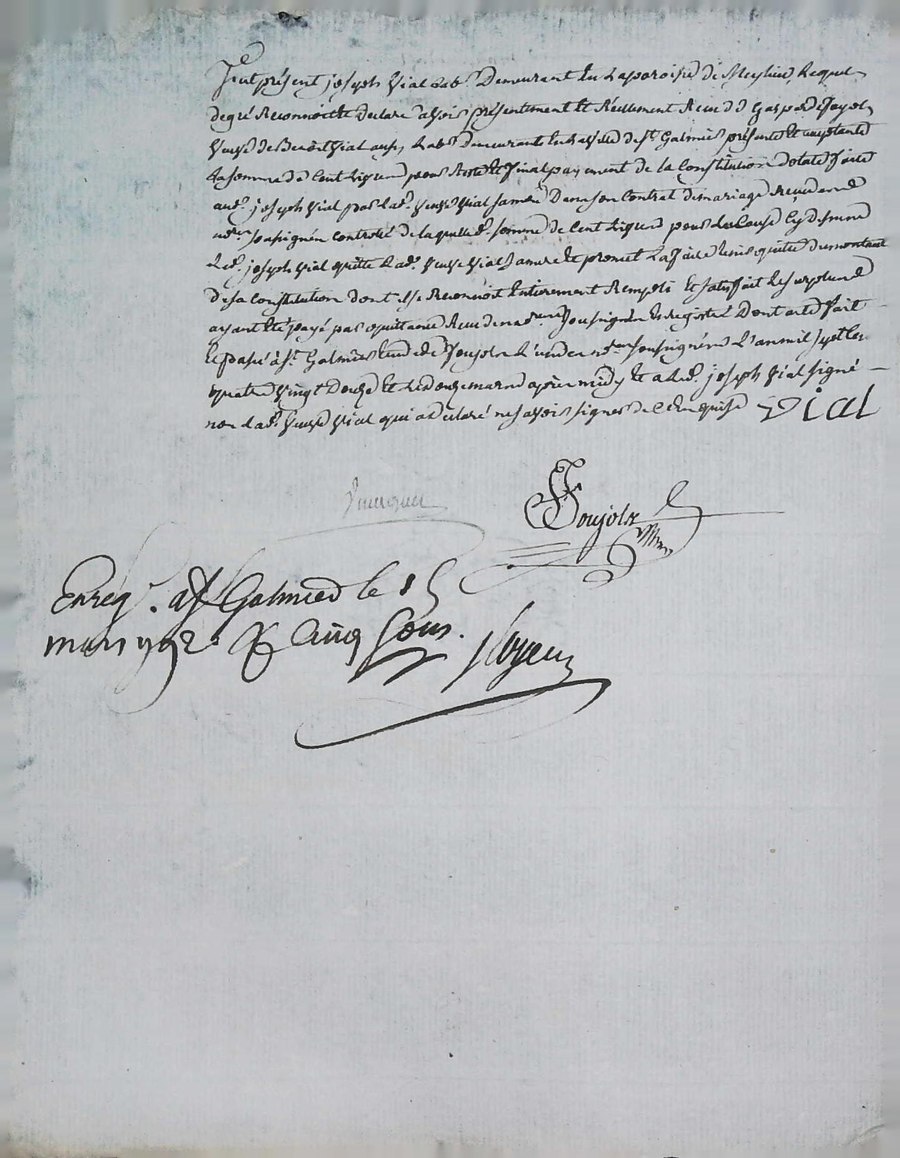 fut présent joseph vial lab.r Demeurant en La paroisse de Meylieu, Lequel
de gré Reconnoit et declare avoir présentement et Réellement Receu de
veuve de Benoit vial aussy Lab.r demeurant en La ville de S.t Galmier présente et acceptante
La somme de Cent Livres pour Reste et final payement de la Constitution dotale faite
aud.t joseph vial par lad.e veuve vial sa mère Dans son Contrat de mariage Receu
n.re soussigné controlé de laquelle d.e somme de Cent Livres pour La Cause Cy dessus
Led.t joseph vial quitte Lad.e veuve vial sa mere et promet La faire tenir quitte du montant
de sa Constitution dont il se Reconnoit Entierement Rempli Et satisfait Le surplus
ayant été payé par quittance Receu de n.re soussigné Enregistré Dont acte fait
et passé à S.t Galmier Etude de Poujola L'un des n.res soussignés L'an mil sept Cent
quatre vingt Douze et Le douze mars après midy et a Led.t joseph vial signé
non Lad.e veuve vial qui a declaré ne savoir signer de ce Enquise vial
Poujola
Enreg.é à S.t Galmier le 15
mars 1792 R. Cinq Sous.